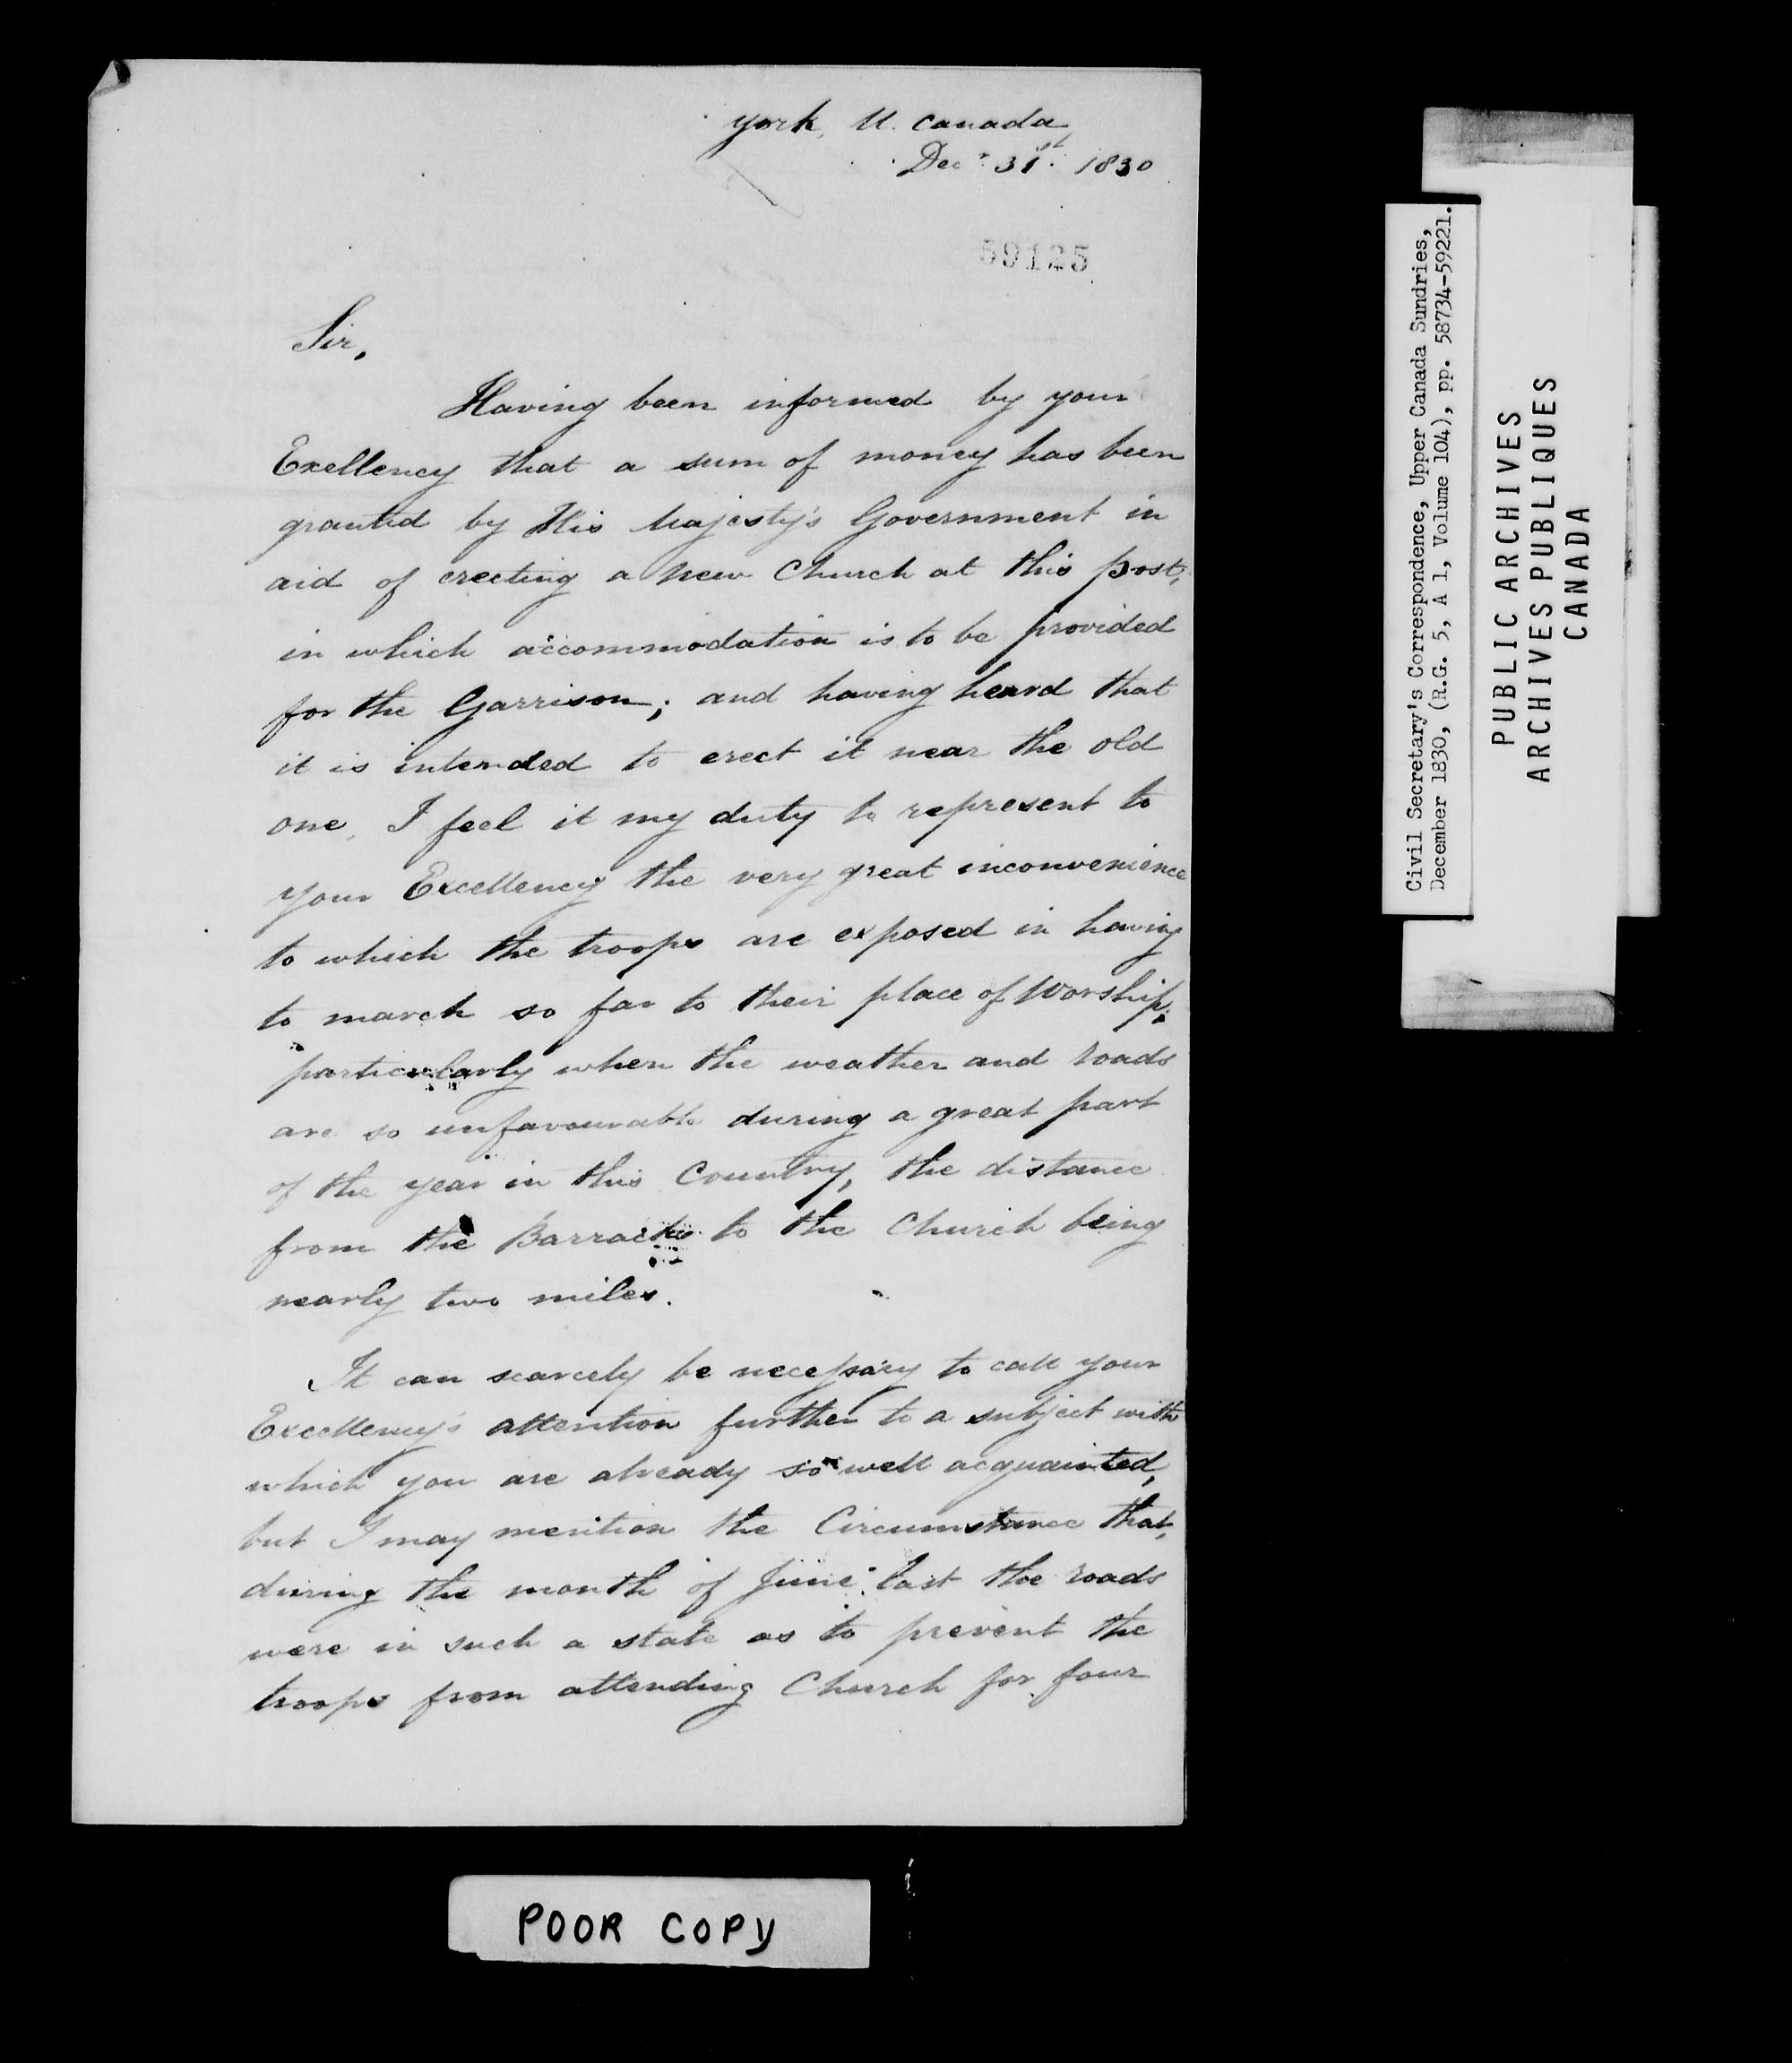 York, U. Canada
Decr. 31st. 1830
59125
Sir,
Having been informed by your
Exellency that a sum of money has been
granted by His Majesty's Government in
aid of erecting a new Church at this post,
in which accommodation is to be provided
for the Garrison; and having heard that
it is intended to erect it near the old
one, I feel it my duty to represent to
your Excellency the very great inconvenience
to which the troops are exposed in having
to march so far to their place of Worship,
particularly when the weather and roads
are so unfavourable during a great part
of the year in this Country, the distance
from the Barracks to the Church being
nearly two miles.
It can scarcely be necessary to call your
Excellency's attention further to a subject with
which you are already so well acquainted,
but I may mention the Circumstance that,
during the month of June last the roads
were in such a state as to prevent the
troops from attending Church for four
POOR COPY
Civil Secretary's Correspondence, Upper Canada Sundries,
December 1830, (R.G. 5, A 1, Volume 104), pp. 58734-59221.
PUBLIC ARCHIVES
ARCHIVES PUBLIQUES
CANADA